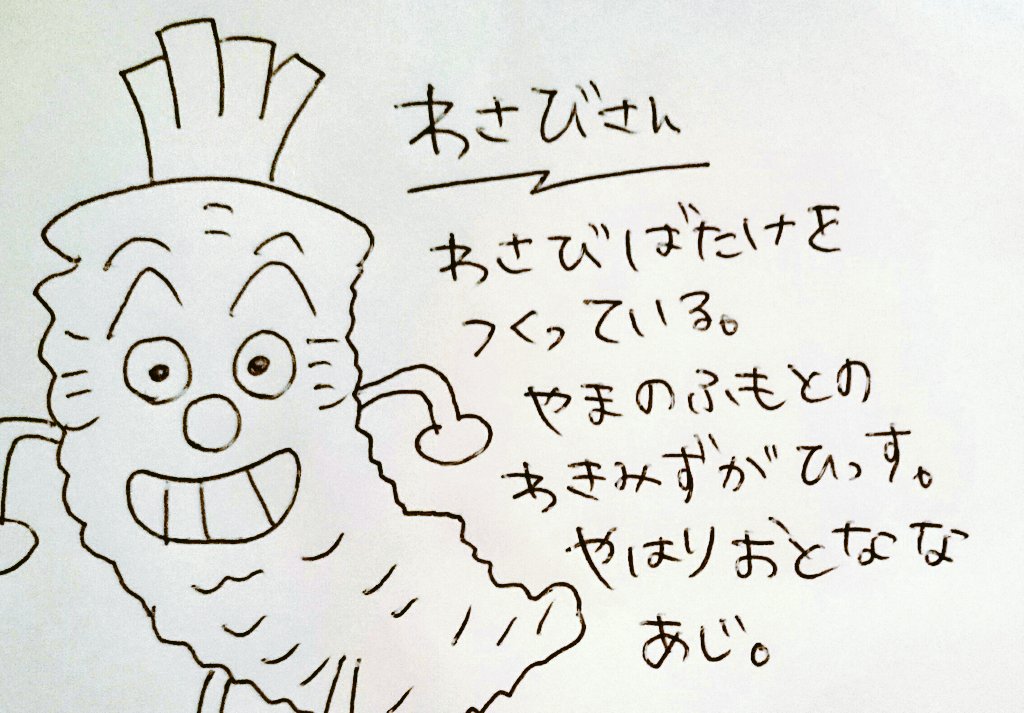 わさびさん
わさびばたけを
つくっている。
やまのふもとの
わきみずがひっす。
やはりおとなな
あじ。